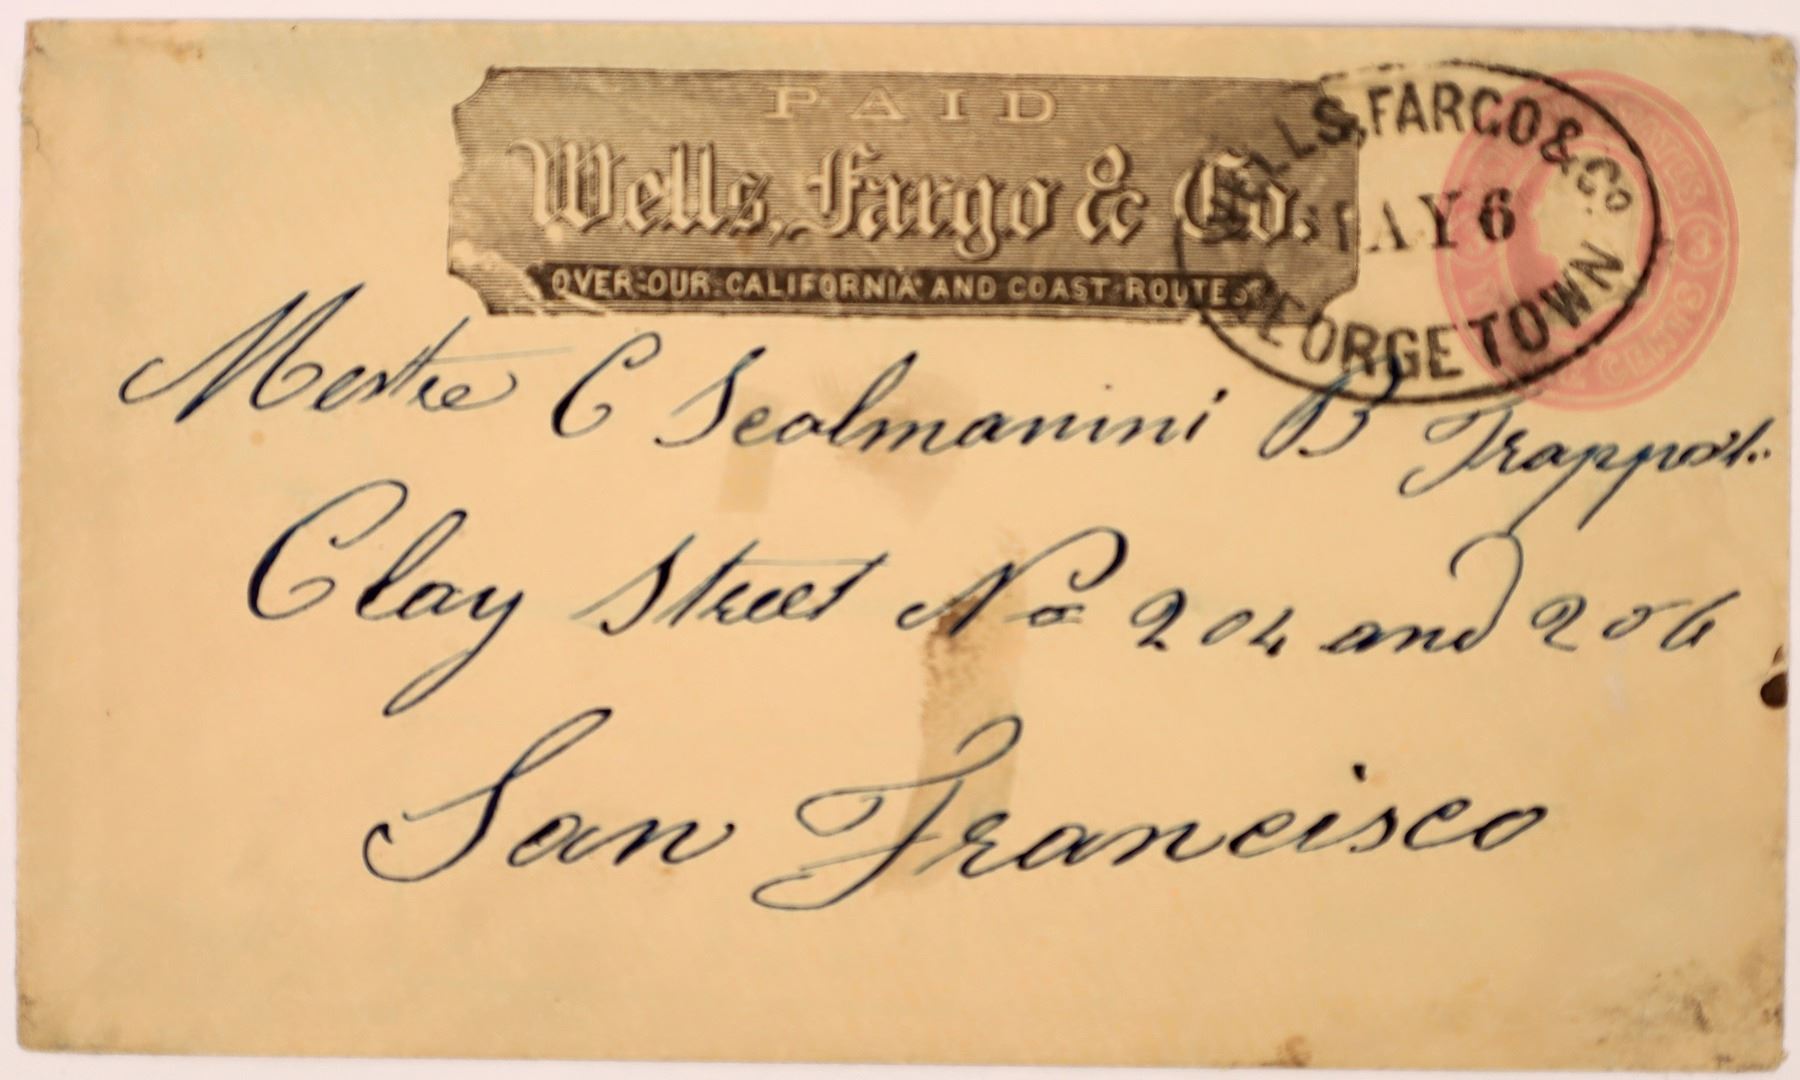 PAID
Wells, Fargo & Co.
OVER-OUR-CALIFORNIA AND COAST ROUTES
WELLS, FARGO & Co.
MAY 6
GEORGETOWN
CENTS
C Scolmanini B
Clay Street No 204 and 206
San Francisco